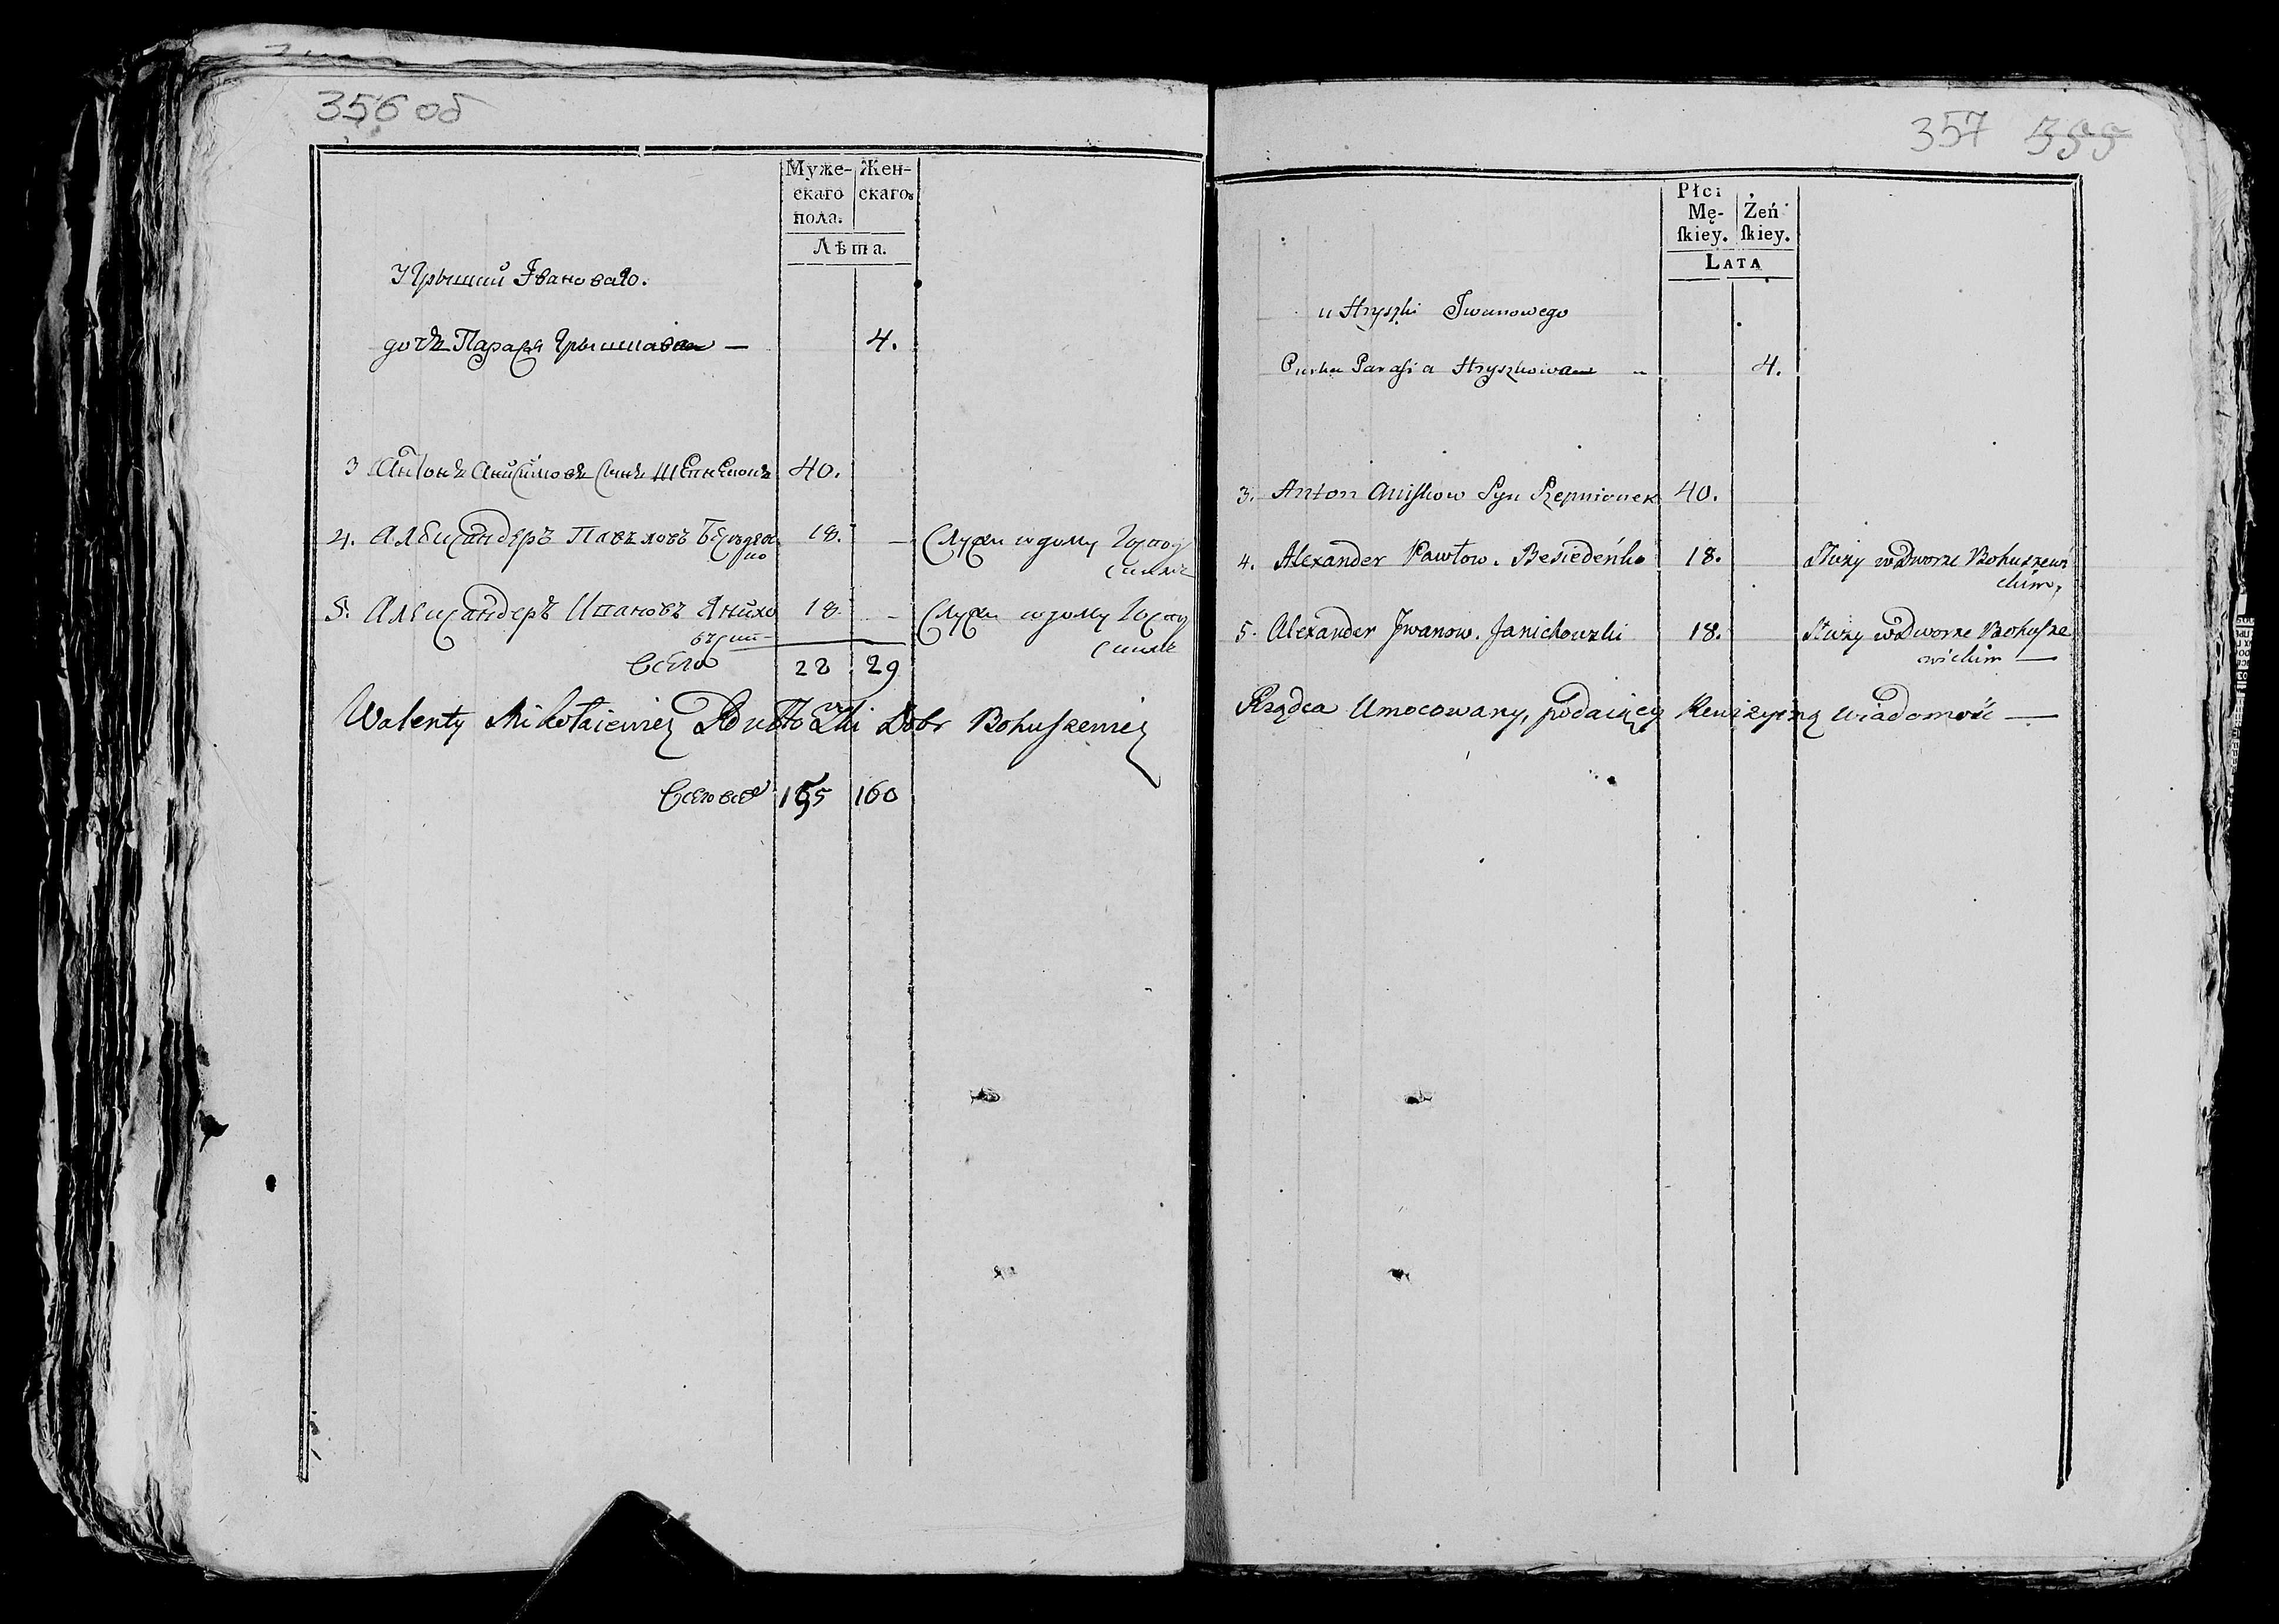 356 об
Муже-
скаго
пола.
Жен-
скаго.
Лѣта.
У Грышки Iвановаго.
дочь Парася Грышкова — 4.
3 Антонъ Анисковъ сынъ Щепнёнокъ 40.
4. Александеръ Павловъ Бесѣден 18. — Служи въ дому Господ
ко
скимъ
5. Александеръ Ивановъ Янихо 18 — Служи въ дому Госпо
Всего 28 29
Walenty Mikołaiewicz Dobr Bohuszewicz
Всего все 155 160
357 355
Płci
Mę-
ſkiey.
Żeń
ſkiey.
LATA
u Hryszki Iwanowego
Curka Parasia Hryszkowa 4.
3. Anton Aniskow Syn Szepnionek 40.
4. Alexander Pawłow. Besiedeńko 18. Służy w Dworze Bohuszewi
ckim,
5. Alexander Jwanow. Janichowzki 18. Służy w Dworze Bohusze
wickim —
Rządca Umocowany, podaiący Rewizyiną wiadomość —